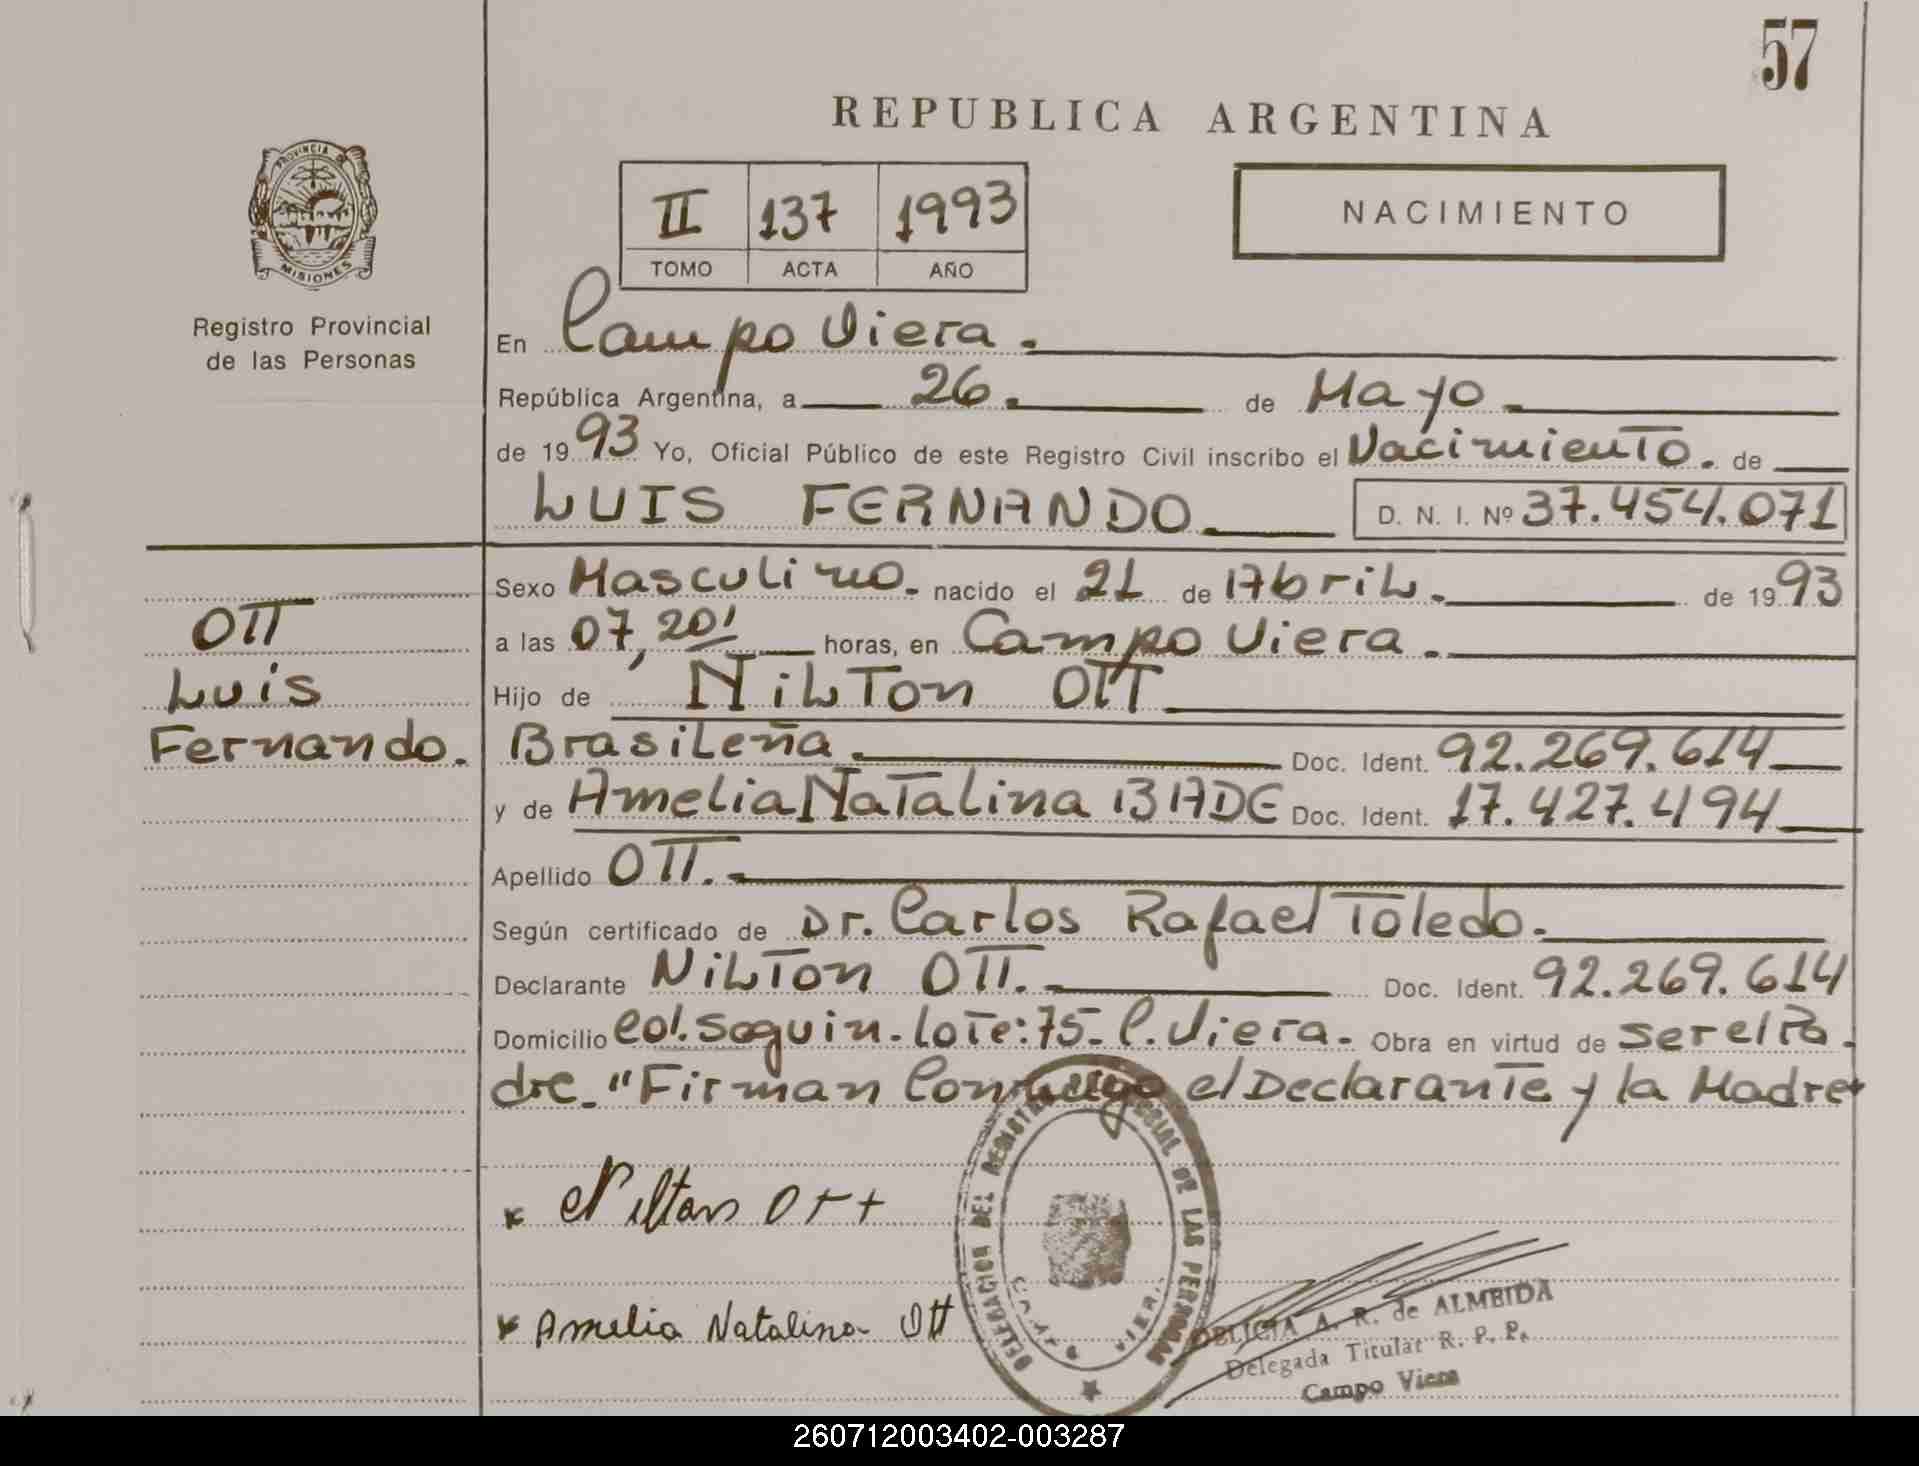 57
REPUBLICA ARGENTINA
PROVINCIA DE
MISIONES
Registro Provincial
de las Personas
II 137 1993
TOMO ACTA AÑO
NACIMIENTO
En Campo Viera.
República Argentina, a 26. de Mayo
de 1993 Yo, Oficial Público de este Registro Civil inscribo el Nacimiento. de
LUIS FERNANDO D. N. I. Nº 37.454.071
OTT
Luis
Fernando.
Sexo Masculino. nacido el 21 de Abril. de 1993
a las 07,20' horas, en Campo Viera.
Hijo de Nilton OTT
Brasileña Doc. Ident. 92.269.614
y de Amelia Natalina BADE Doc. Ident. 17.427.494
Apellido OTT.
Según certificado de Dr. Carlos Rafael Toledo.
Declarante Nilton OTT. Doc. Ident. 92.269.614
Domicilio Col. Seguin. Lote: 75- C. Viera. Obra en virtud de ser el Pa
dre. "Firman Conmigo el Declarante y la Madre
x Nilton Ott
x Amelia Natalina Ott
DELEGACION DEL REGISTRO PROVINCIAL DE LAS PERSONAS
CAMPO VIERA
A. R. de ALMEIDA
Delegada Titular R. P. P.
Campo Viera
260712003402-003287